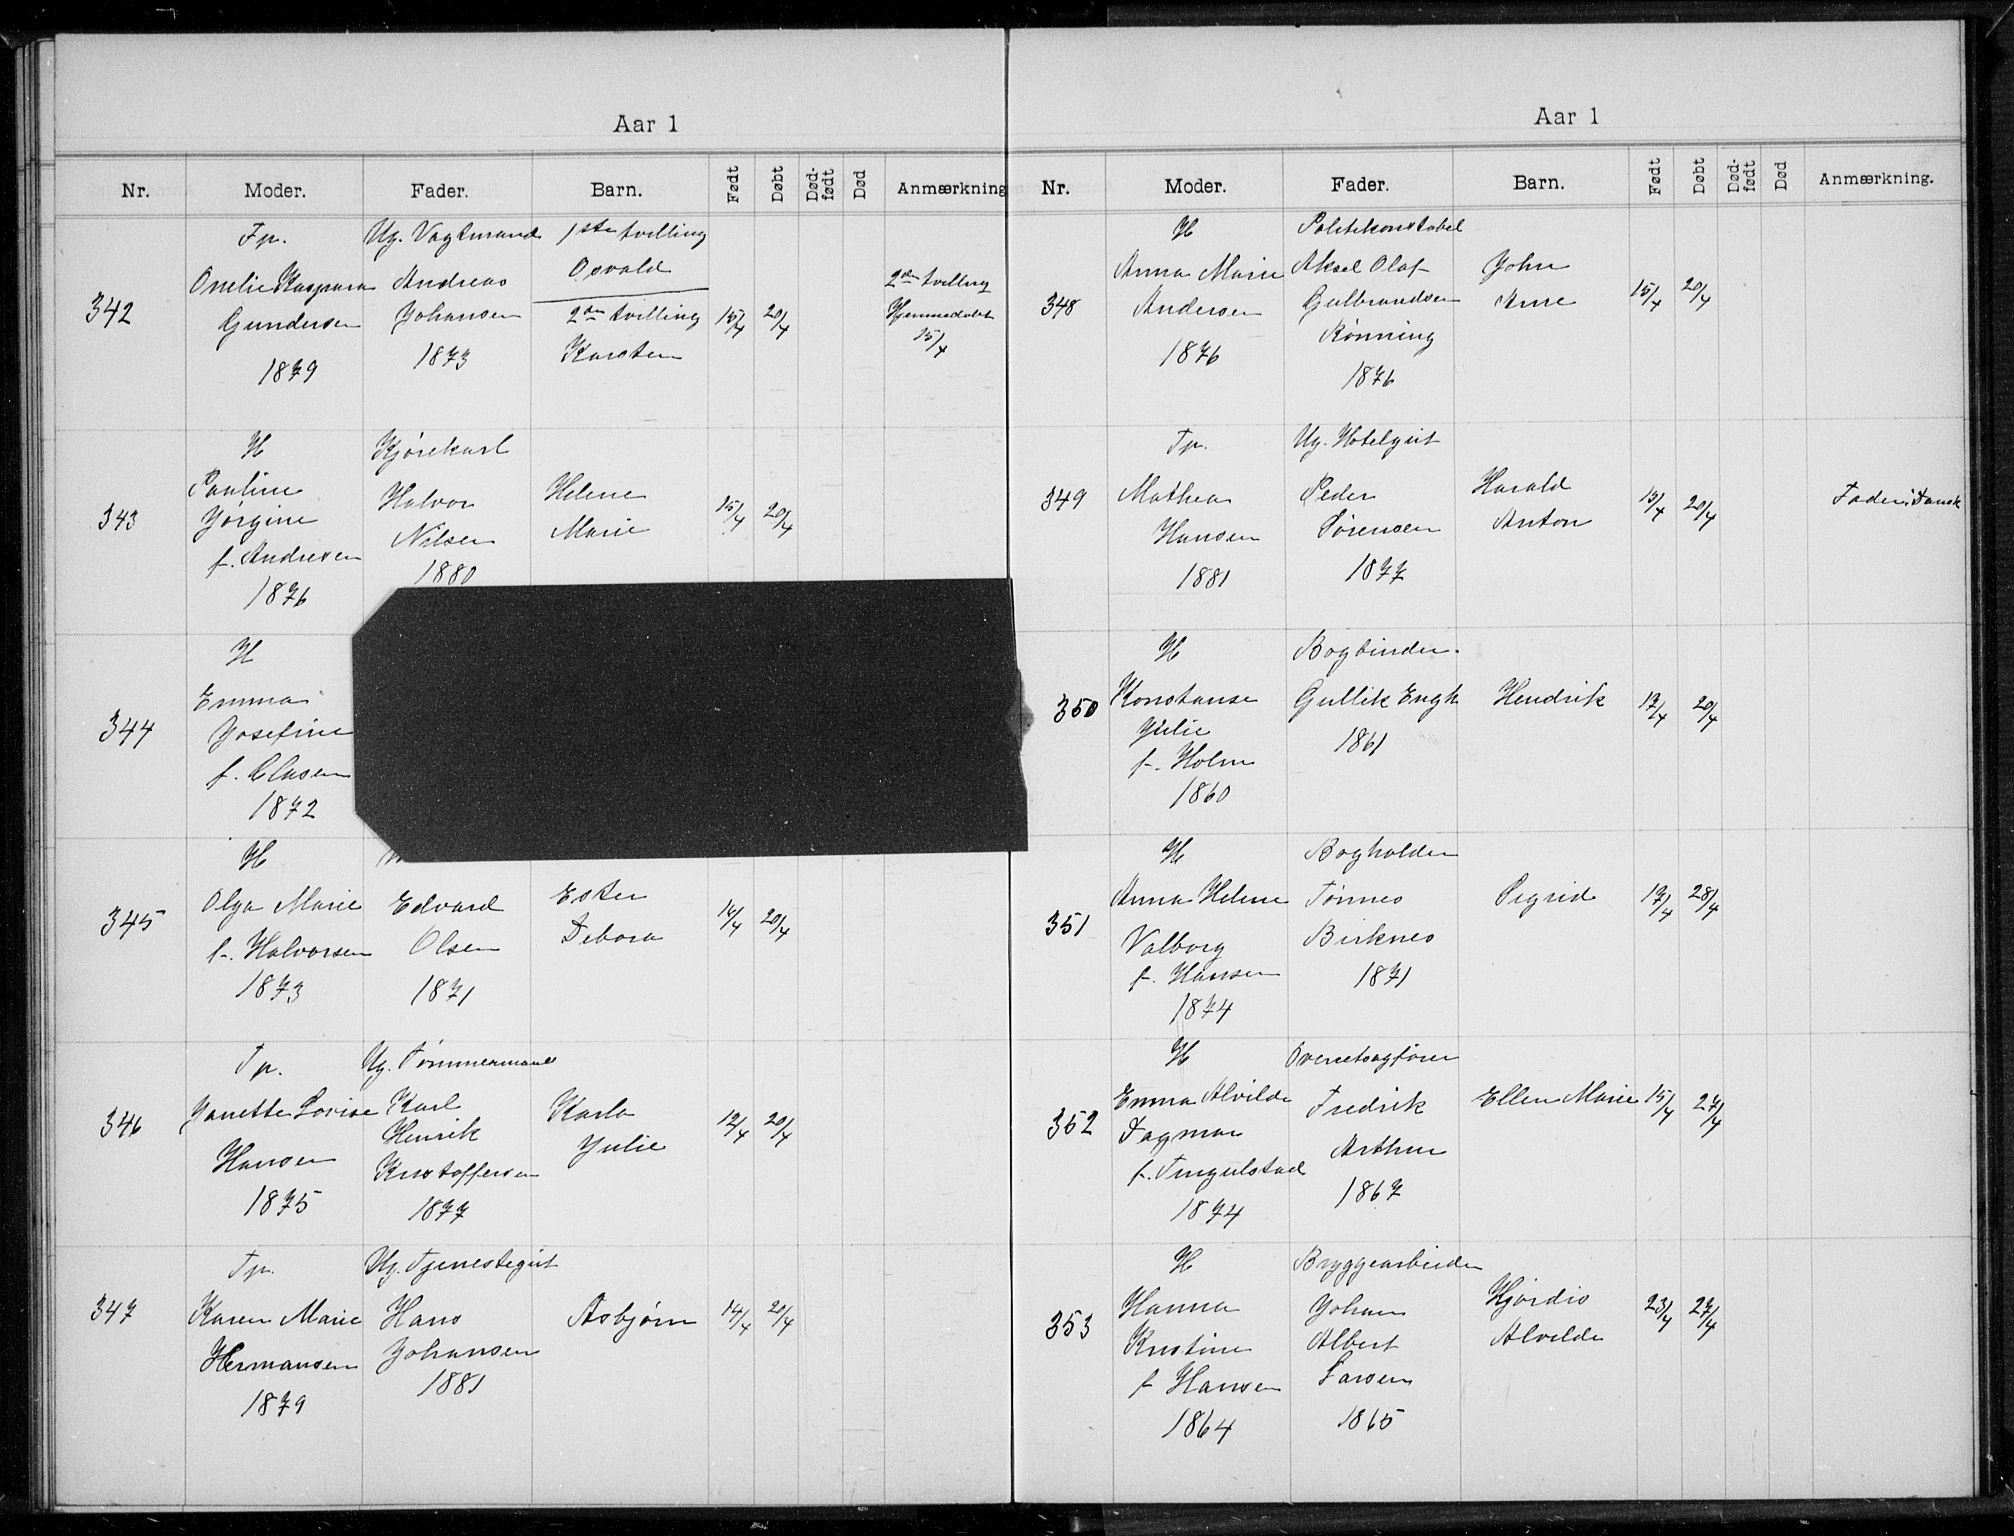 Aar 1
Nr. Moder. Fader. Barn. Født Døbt Død-født Død Anmærkning
342
Fp.
Onelie Kaspara
Gundersen
1879
Ug. Vagtmand
Andreas
Johansen
1873
1ste tvilling
Osvald
2den tvilling
Karsten
15/4 20/4
2den tvilling
Hjemmedøbt
15/4
343
H
Pauline
Jørgine
f. Andresen
1876
Kjørekarl
Halvor
Nilsen
1880
Helene
Marie
15/4 20/4
344
H
Emma
Josefine
f. Clasen
1872
345
H
Olga Marie
f. Halvorsen
1873
Edvard
Olsen
1871
Ester
Debora
16/4 20/4
346
Tp.
Janette Lovise
Hansen
1875
Ug. Tømmermand
Karl
Henrik
Kristoffersen
1877
Karla
Julie
12/4 20/4
347
Tp.
Karen Marie
Hermansen
1879
Ug. Tjenestegut
Hans
Johansen
1881
Asbjørn
14/4 20/4
Aar 1
Nr. Moder. Fader. Barn. Født Døbt Død-født Død Anmærkning.
348
H
Anna Marie
Andersen
1876
Politikonstabel
Aksel Olaf
Gulbrandsen
Rønning
1876
John
Arne
15/4 20/4
349
Tp.
Mathea
Hansen
1881
Ug. Hotelgut
Peder
Sørensen
1877
Harald
Anton
13/4 20/4
Fader: Dansk
350
H
Konstanse
Julie
f. Holm
1860
Bogbinder
Gullik Engh
1861
Hendrik
17/4 20/4
351
H
Anna Helene
Valborg
f. Hansen
1874
Bogholder
Tønnes
Birknes
1871
Sigrid
17/4 28/4
352
H
Emma Alvilde
Dagmar
f. Tingulstad
1874
Overretsagfører
Fredrik
Arthur
1867
Ellen Marie
15/4 27/4
353
H
Hanna
Kristine
f. Hansen
1864
Bryggearbeider
Johan
Albert
Larsen
1865
Hjørdis
Alvilde
23/4 27/4